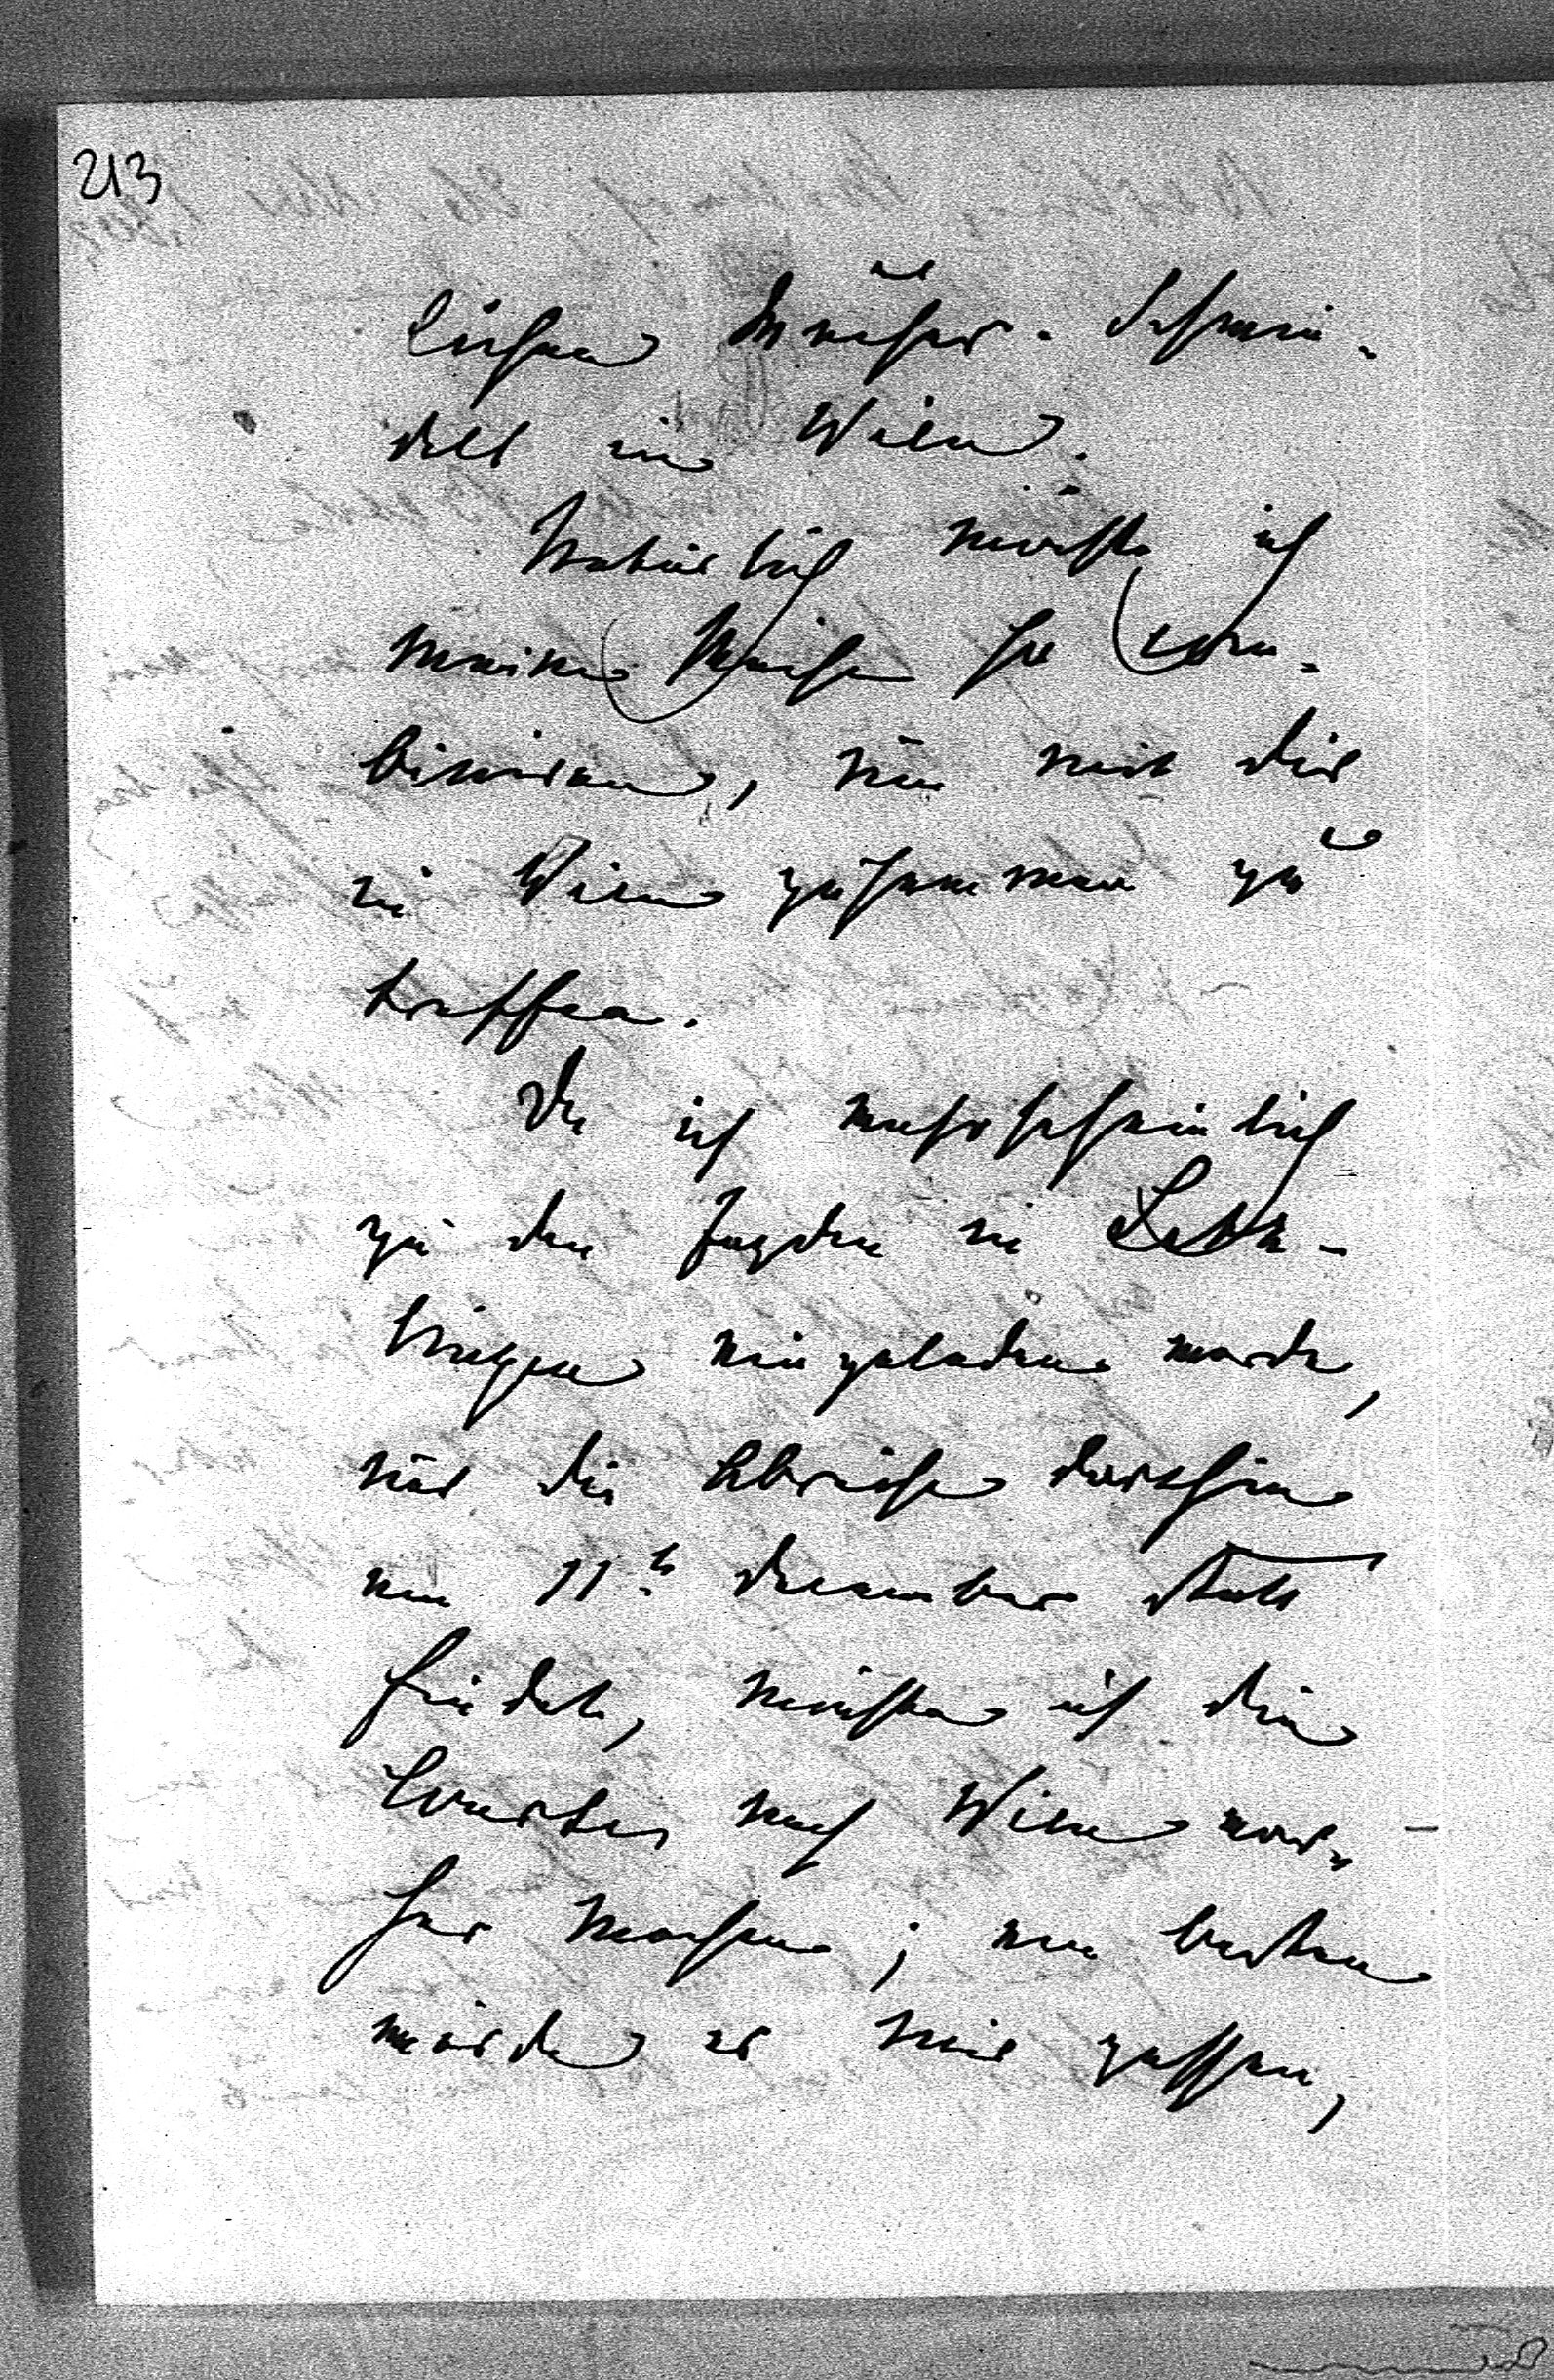 213
lichen Macher-Schwin-
delt in Wien.
Natürlich möchte ich
meine Reise so com-
biniren, um mit dir
in Wien zusammen zu
treffen.
Da ich wahrscheinlich
zu den Jagden in Letz-
lingen eingeladen werde,
und die Abreise dorthin
am 11t December statt
findet, müßte ich die
Tour nach Wien vor-
her machen; am besten
würde es mir passen,